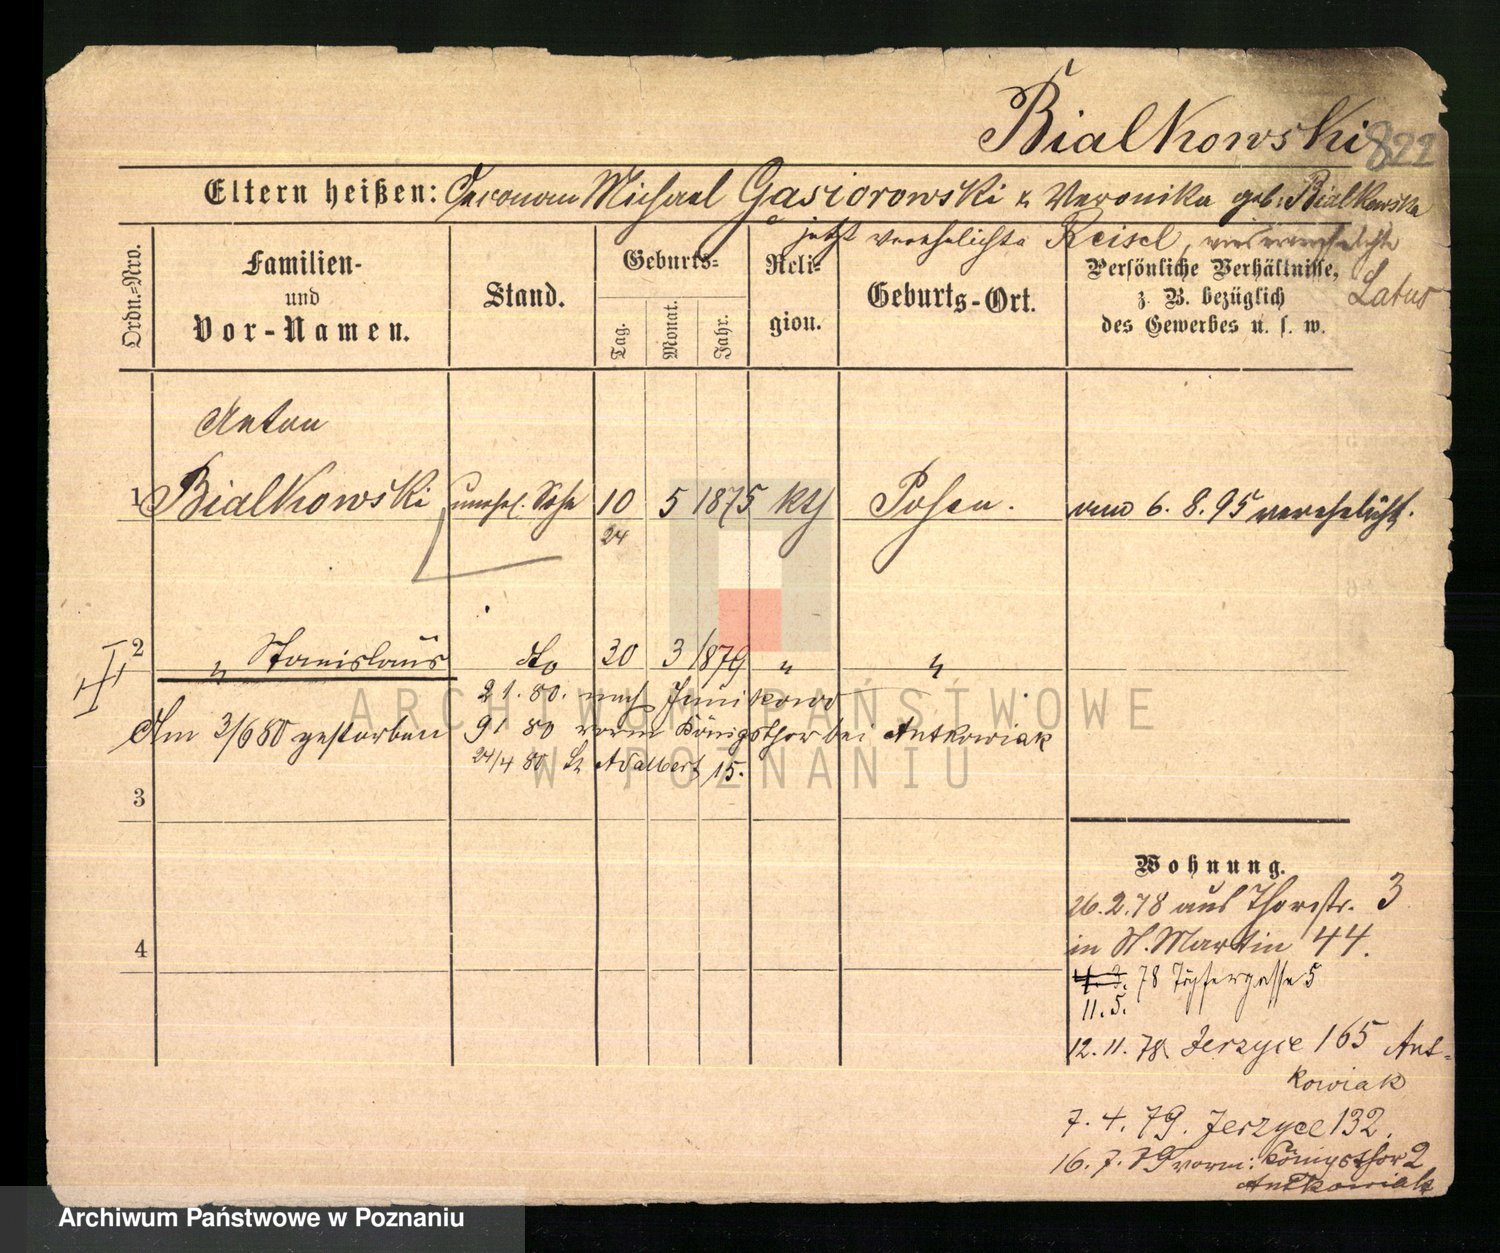 Bialkowski 822
Eltern heißen: Oeconom Michael Gasiorowski & Veronika geb: Bialkowska
jetzt verehelichte Reisel,
Latus
Ordn.-Nro.
Familien-
und
Vor-Namen.
Stand.
Geburts-
Tag.
Monat.
Jahr.
Reli-
gion.
Geburts-Ort.
Persönliche Verhältnisse,
z. B. bezüglich
des Gewerbes u. s. w.
Anton
1 Bialkowski unehel. Sohn 10 5 1875 kth Posen. 6. 8. 95 verehelicht.
24
2 " Stanislaus do 30 3 1879 " "
2 1. 80. nach Junikowo
Am 3/6 80 gestorben 9 1 80 vorm Königsthor bei Antkowiak
24/4 80 St Adalbert 15.
3
Wohnung.
26.2.78 aus Thorstr. 3
in St. Martin 44.
78 Töpfergasse 5
11.5.
4
12. 11. 78 Jerzyce 165 Ant-
kowiak
7. 4. 79. Jerzyce 132.
16. 7. 79 vorm: Königsthor 2
Antkowiak
ARCHIWUM PAŃSTWOWE
W POZNANIU
Archiwum Państwowe w Poznaniu